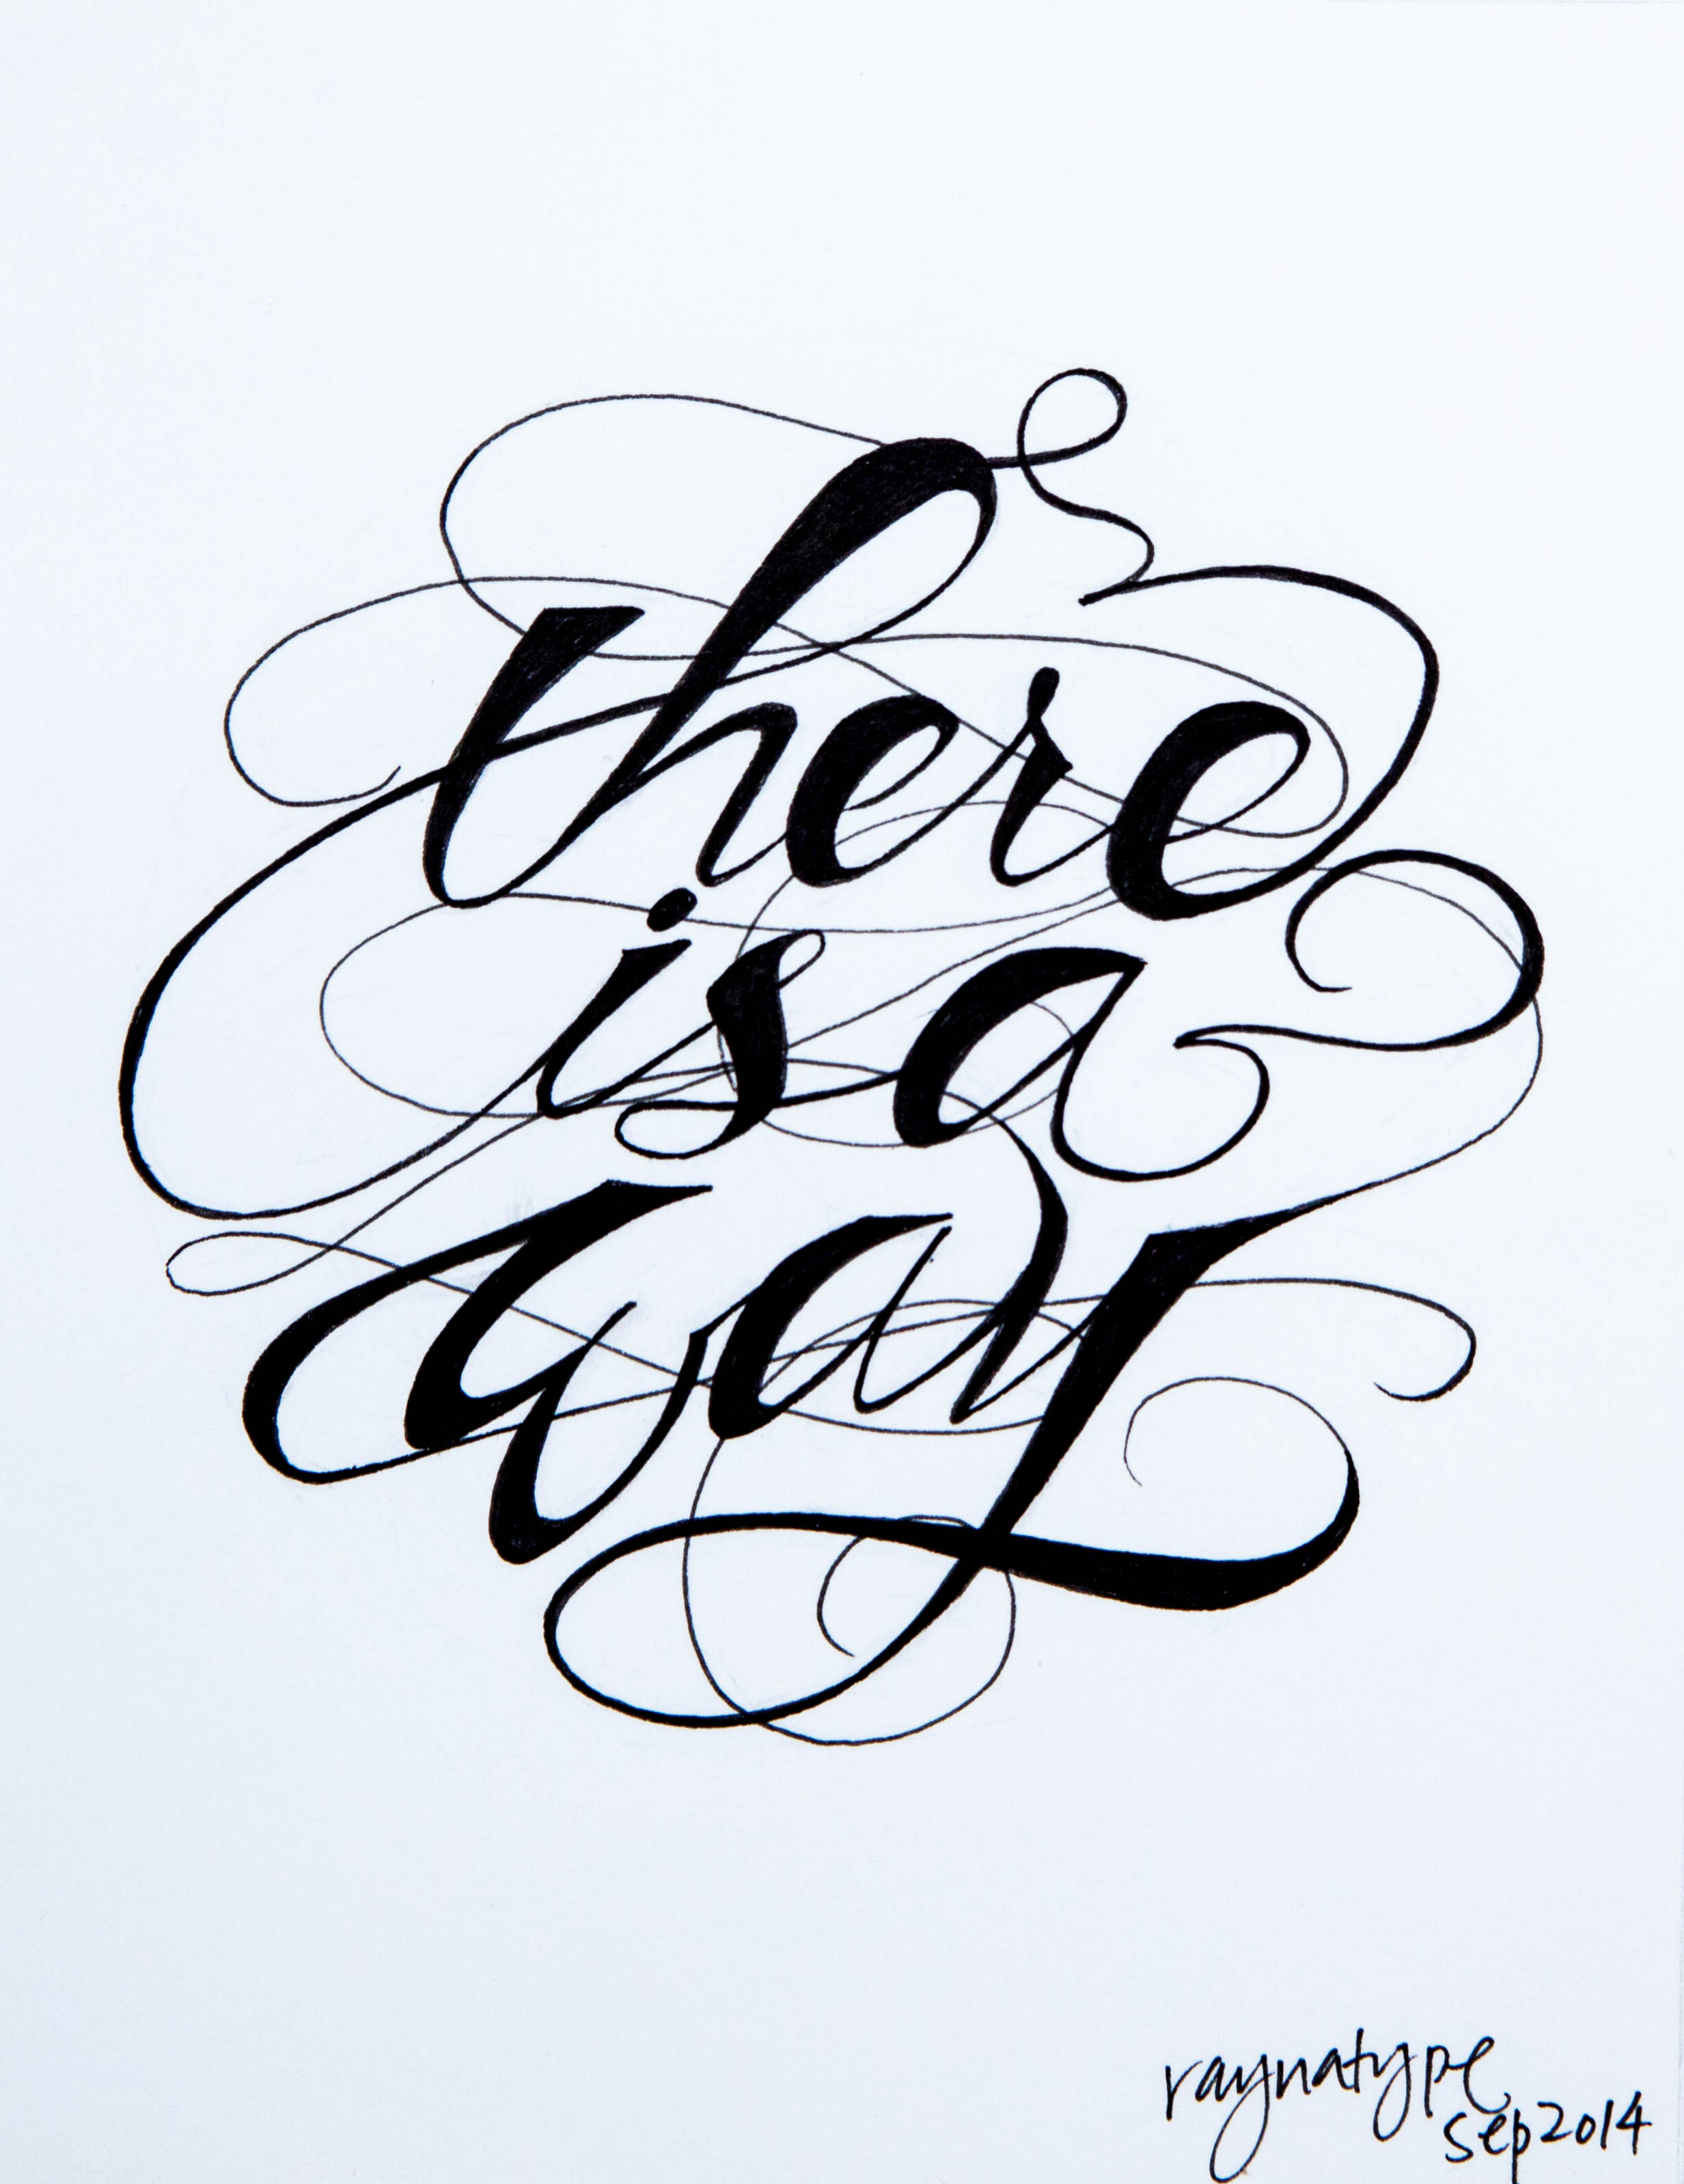 there
is a
way
raynatype
sep 2014